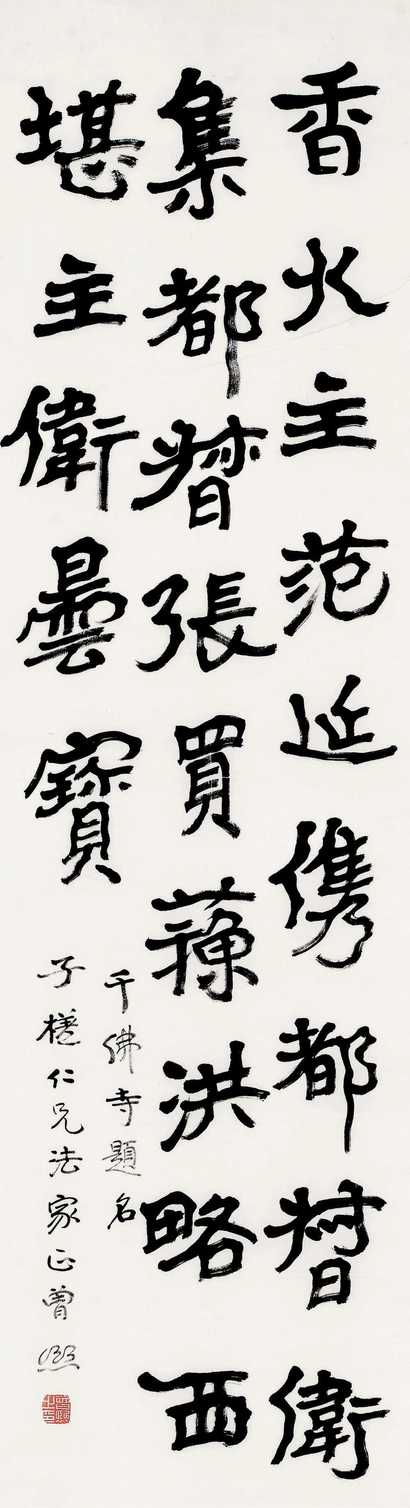 香火主范延儁都督衛
集都督張買蘓洪略西
堪主衛曇寶
千佛寺題名
子樾仁兄法家正曾熙